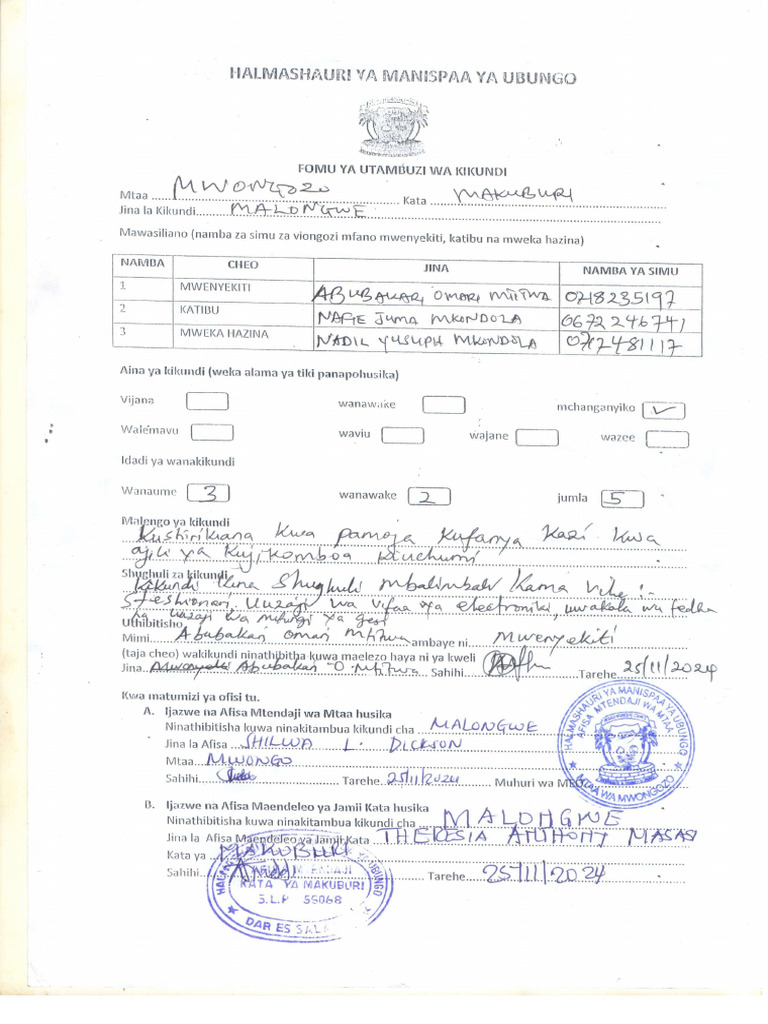 HALMASHAURI YA MANISPAA YA UBUNGO
FOMU YA UTAMBUZI WA KIKUNDI
Mtaa MWONGOZO Kata MAKUBURI
Jina la Kikundi MALONGWE
Mawasiliano (namba za simu za viongozi mfano mwenyekiti, katibu na mweka hazina)
NAMBA CHEO JINA NAMBA YA SIMU
1 MWENYEKITI ABUBAKARI OMARI MTITWA 0718235197
2 KATIBU NAFIE JUMA MKONDOLA 0672246741
3 MWEKA HAZINA NADIL YUSUPH MKONDOLA 0717481117
Aina ya kikundi (weka alama ya tiki panapohusika)
Vijana wanawake mchanganyiko ✓
Walemavu waviu wajane wazee
Idadi ya wanakikundi
Wanaume 3 wanawake 2 jumla 5
Malengo ya kikundi
Kushirikiana kwa pamoja kufanya kazi kwa
ajili ya kujikomboa kiuchumi
Shughuli za kikundi
Kikundi kina Shughuli mbalimbali kama vile :-
Steshionari, Uuzaji wa vifaa vya electroniki, uwakala wa fedha
na uuzaji wa mitungi ya gesi
Uthibitisho
Mimi Abubakari Omari Mtitwa ambaye ni Mwenyekiti
(taja cheo) wakikundi ninathibitha kuwa maelezo haya ni ya kweli
Jina Mwenyekiti Abubakari O. Mtitwa Sahihi Tarehe 25/11/2024
Kwa matumizi ya ofisi tu.
A. Ijazwe na Afisa Mtendaji wa Mtaa husika
Ninathibitisha kuwa ninakitambua kikundi cha MALONGWE
Jina la Afisa SHILWA L. DICKSON
Mtaa MWONGO
Sahihi Tarehe 25/11/2024 Muhuri wa
HALMASHAURI YA MANISPAA YA UBUNGO
AFISA MTENDAJI WA MTAA
MTAA WA MWONGOZO
B. Ijazwe na Afisa Maendeleo ya Jamii Kata husika
Ninathibitisha kuwa ninakitambua kikundi cha MALONGWE
Jina la Afisa Maendeleo ya Jamii Kata THERESIA ANTHONY MASASI
Kata ya MAKUBURI
Sahihi Tarehe 25/11/2024
UBUNGO
KATA YA MAKUBURI
S.L.P 55068
DAR ES SALA